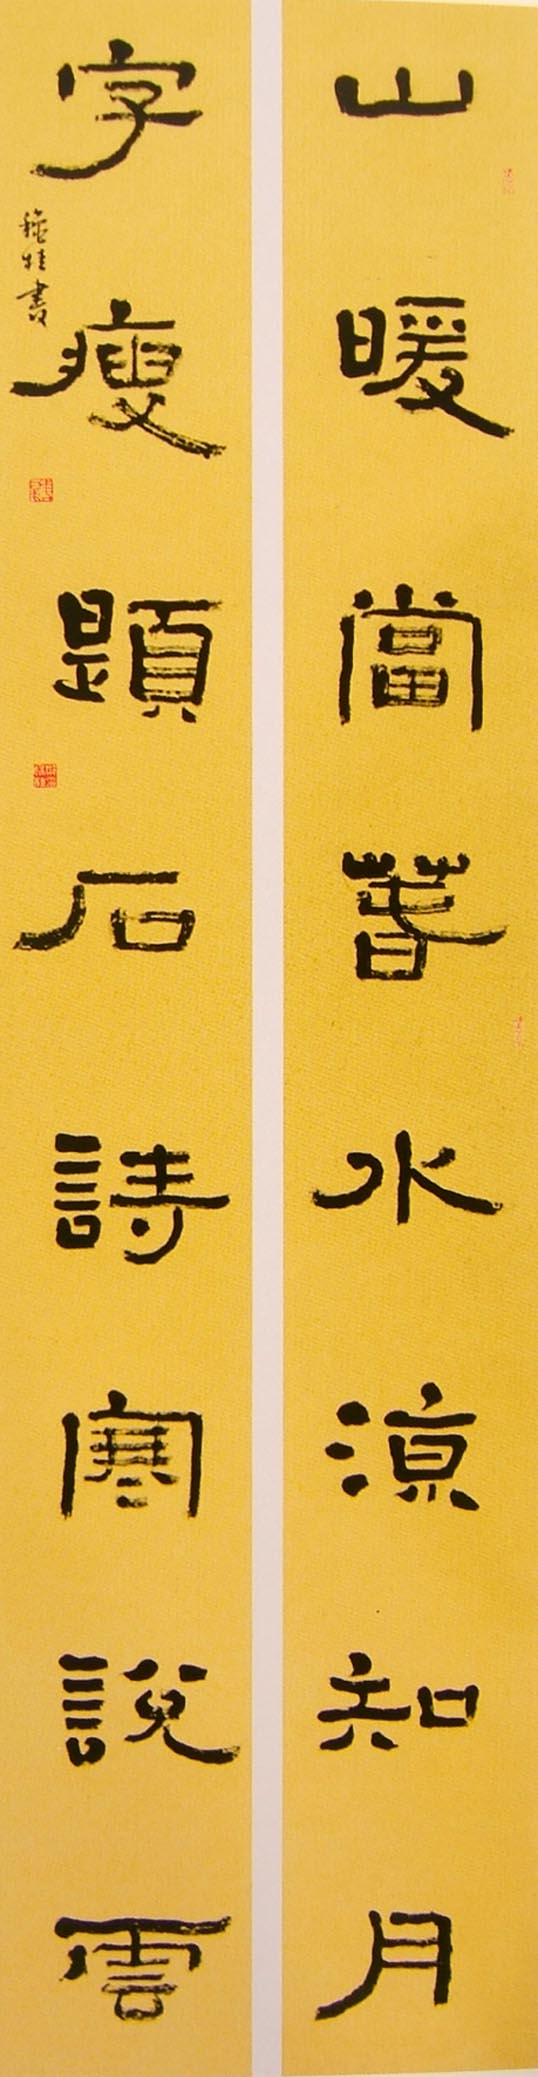 山暖當春水涼知月
字瘦題石詩寒說雲
書